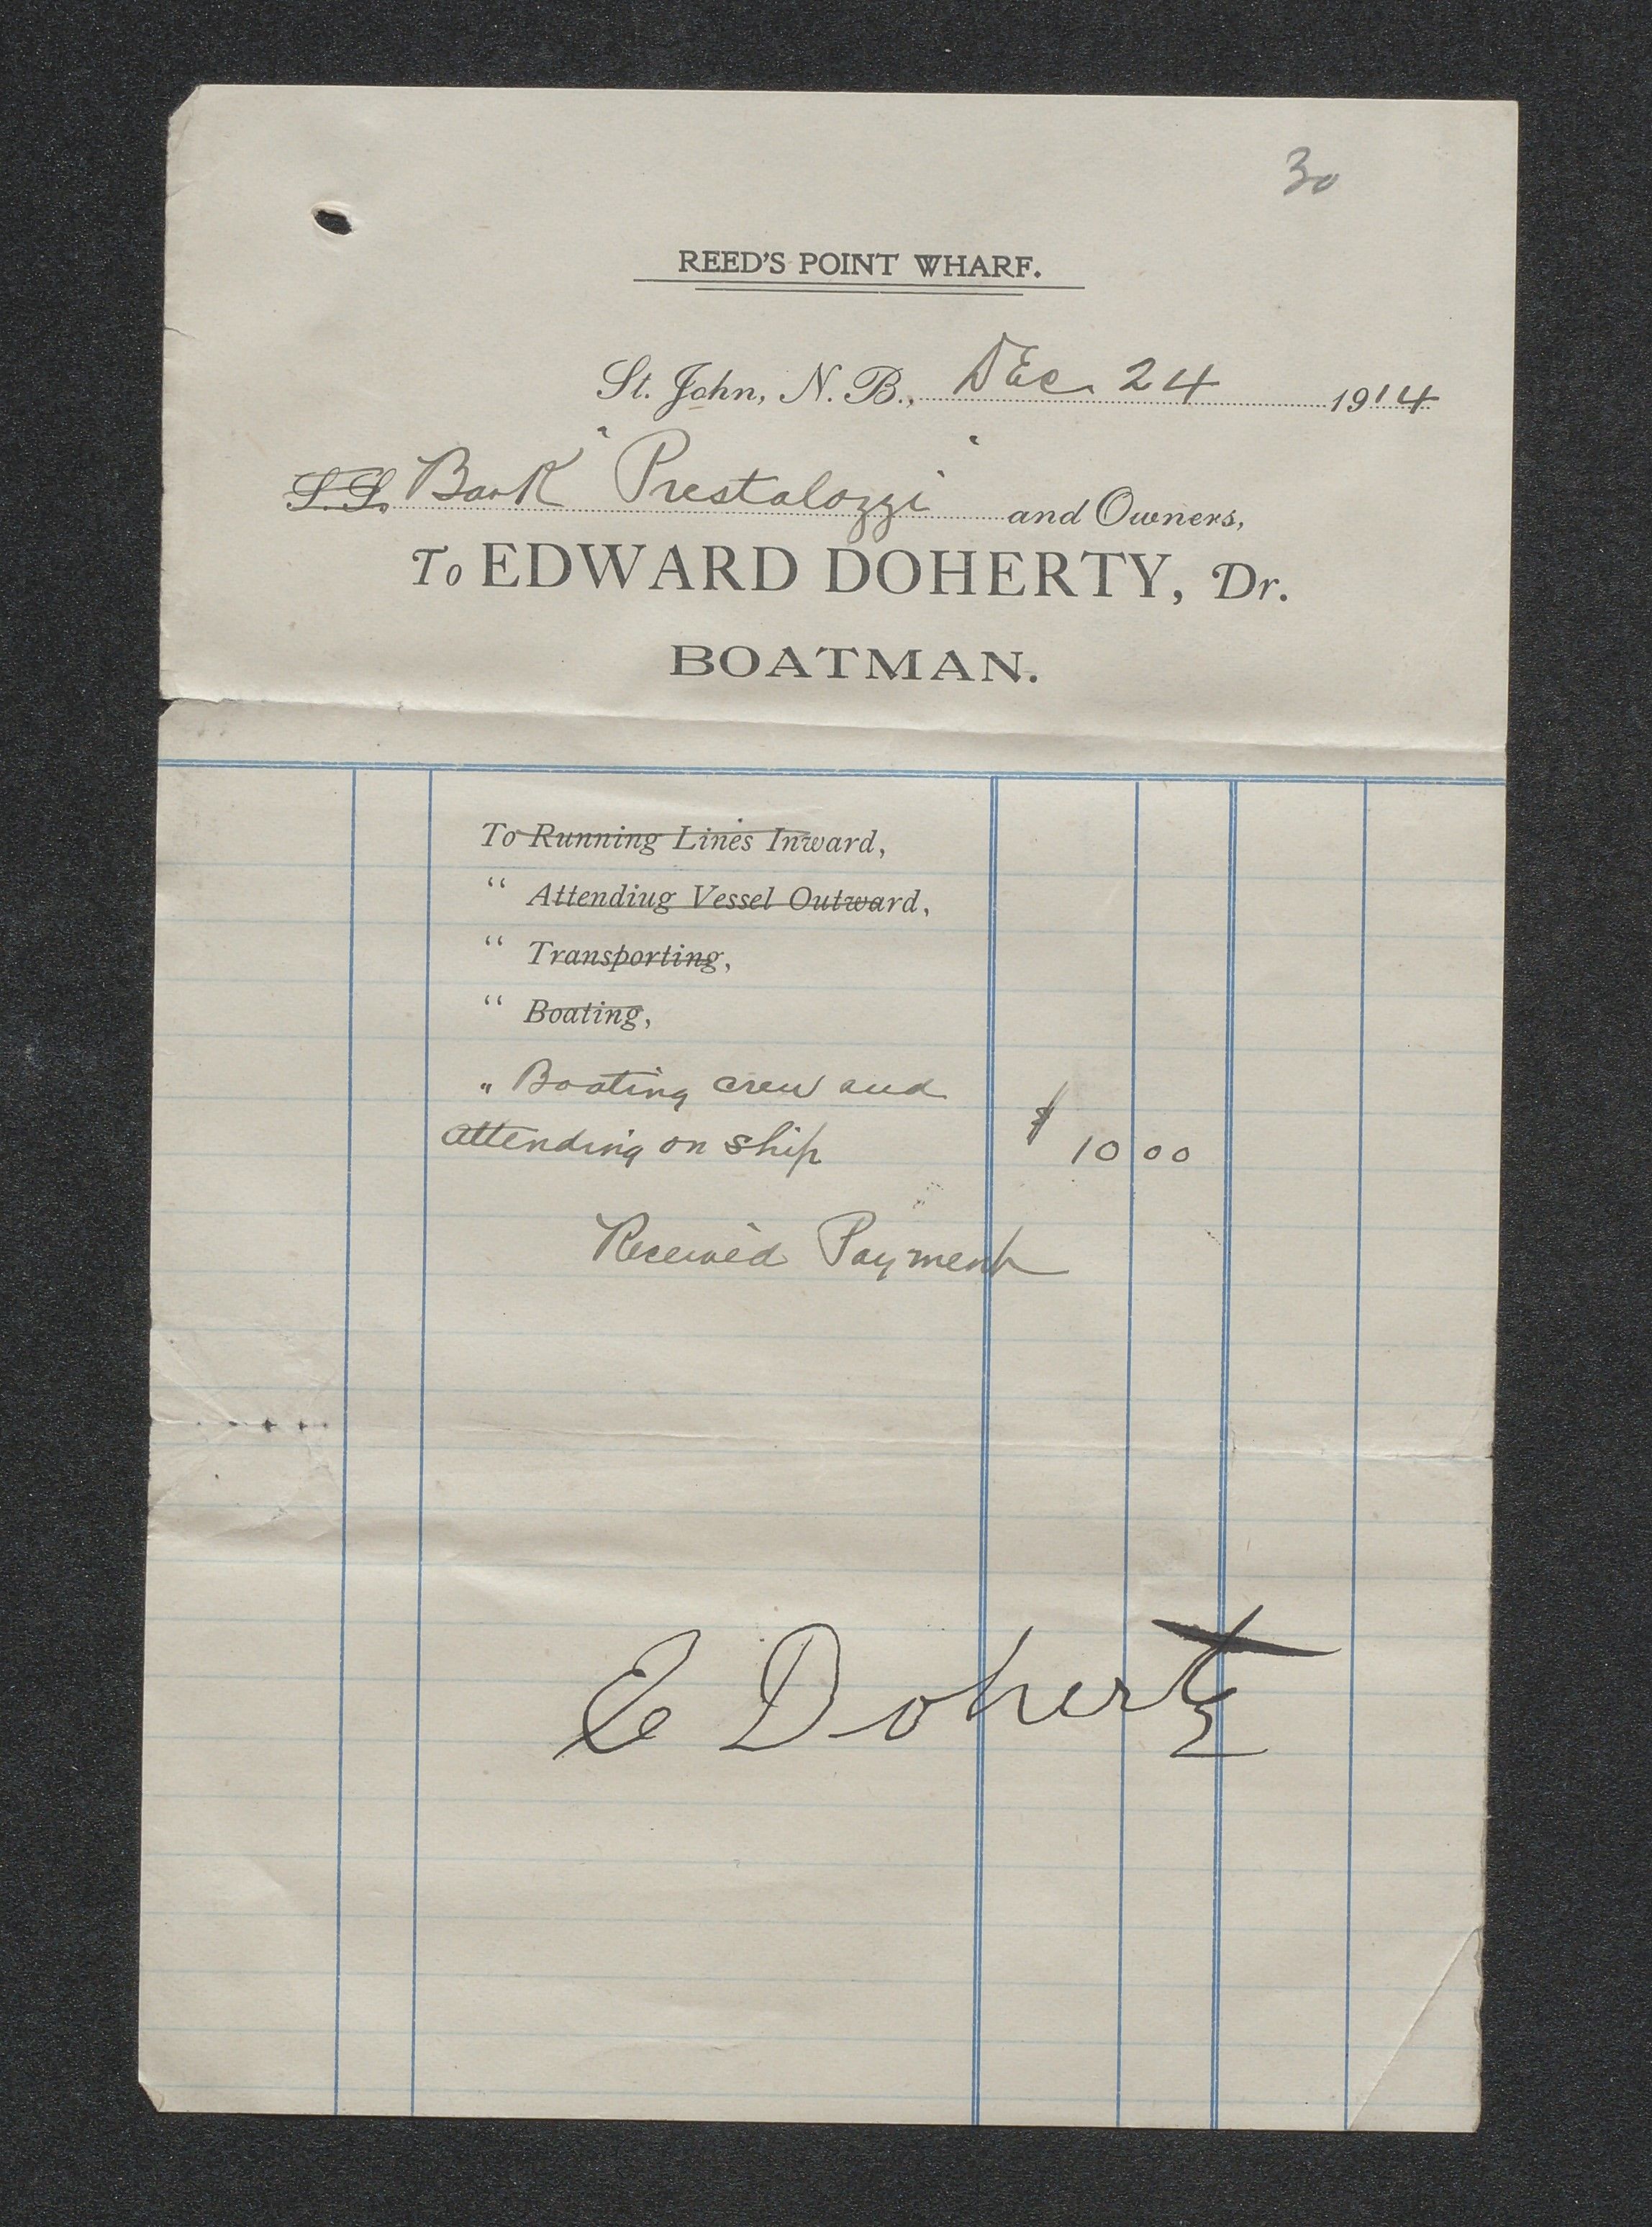 30
REED'S POINT WHARF.
St. John, N. B., Dec 24 1914
S.S. Bark "Prestalozzi" and Owners,
To EDWARD DOHERTY, Dr.
BOATMAN.
To Running Lines Inward,
" Attendiug Vessel Outward,
" Transporting,
" Boating,
" Boating crew and
attending on ship $ 10 00
Received Payment
E Doherty